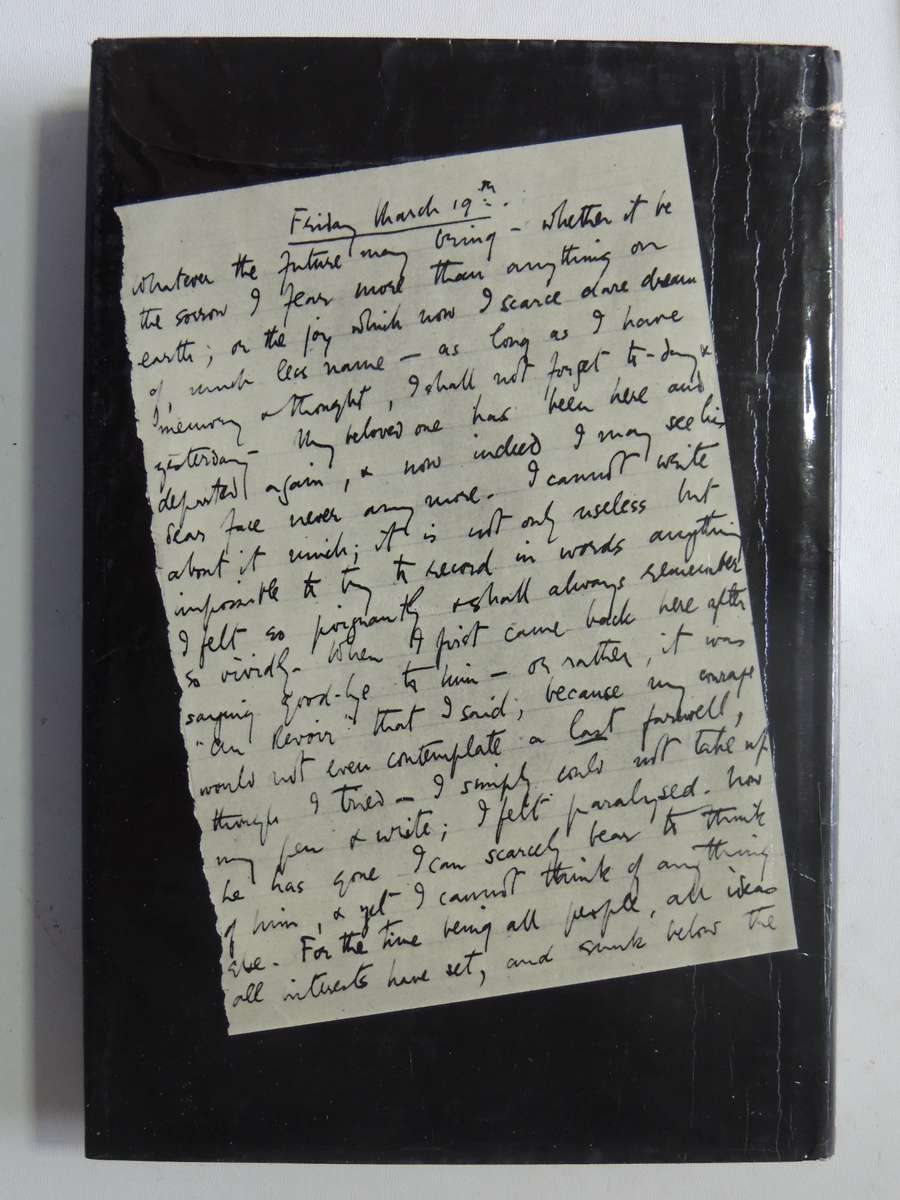 Friday March 19th.
Whatever the future may bring – whether it be
the sorrow I fear more than anything on
earth; or the joy which now I scarce dare dream
of, much less name – as long as I have
memory & thought, I shall not forget to-day &
yesterday – My beloved one has been here and
departed again, & now indeed I may see his
dear face never any more. I cannot write
about it much; it is not only useless but
impossible to try to record in words anything
I felt so poignantly & shall always remember
so vividly. When I first came back here after
saying good-bye to him – or rather, it was
"au revoir" that I said, because my courage
would not even contemplate a last farewell,
though I tried – I simply could not take up
my pen & write; I felt paralysed. Now
he has gone I can scarcely bear to think
of him, & yet I cannot think of anything
else. For the time being all people, all ideas
all interests have set, and sunk below the